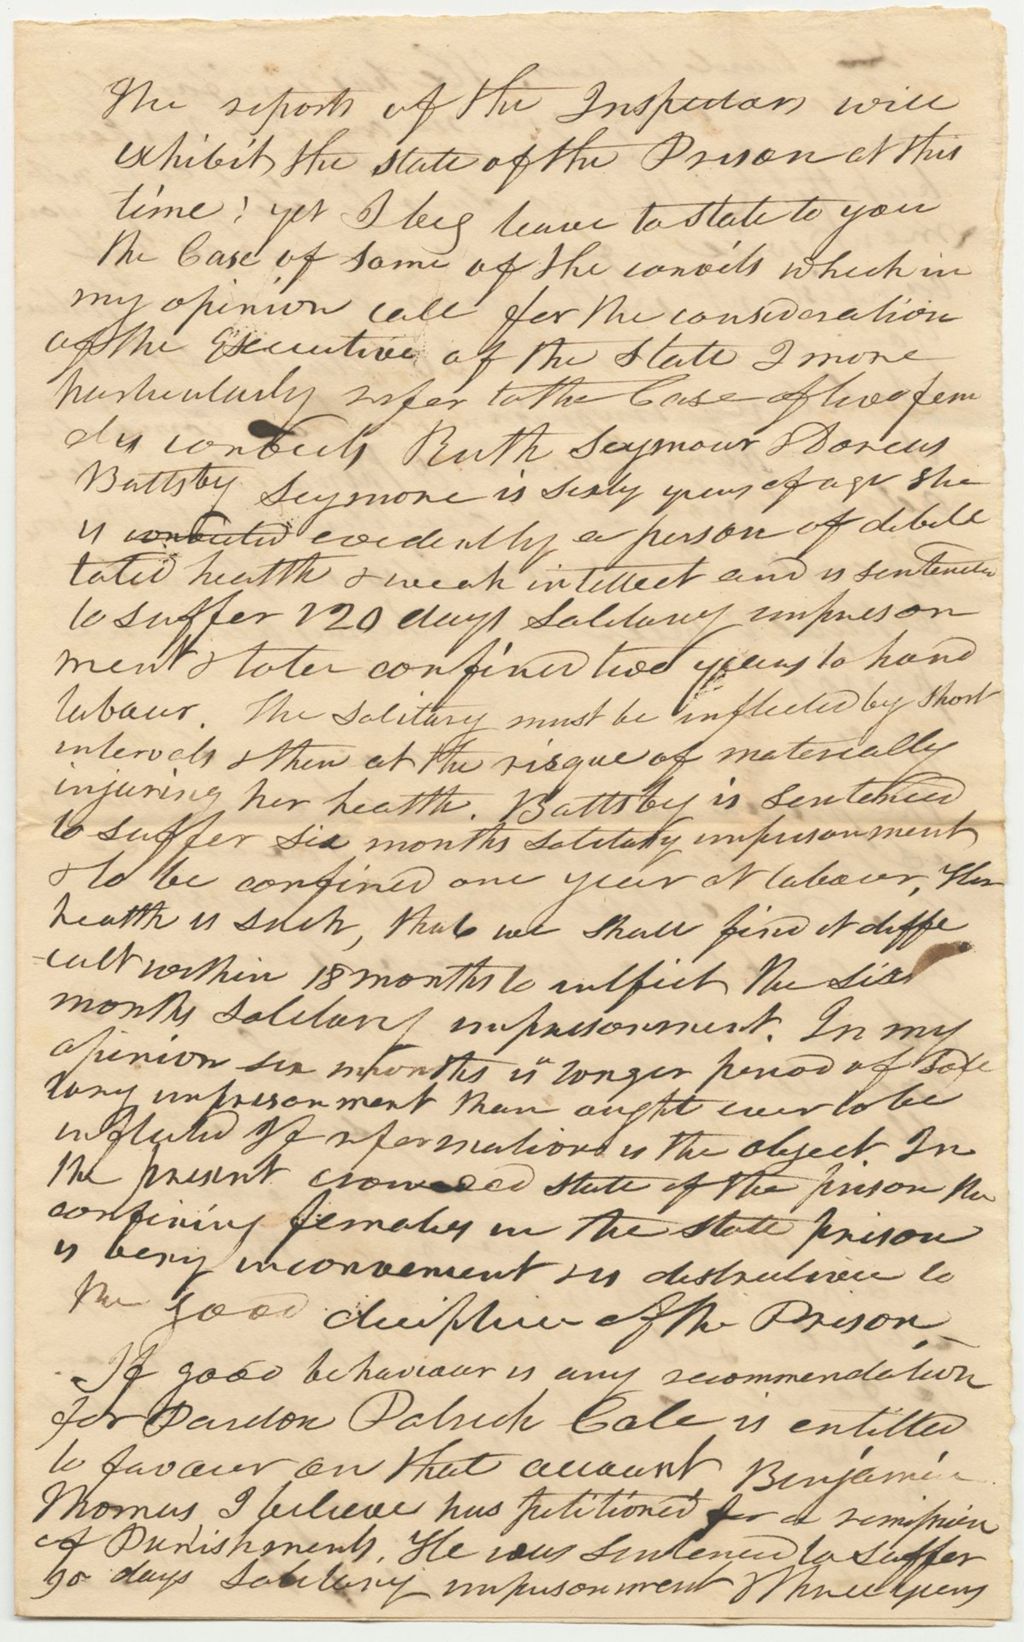 The reports of the Inspectors will
exhibit the state of the Prison at this
time! yet I beg leave to state to you
the Case of some of the convicts which in
my opinion call for the consideration
of the Executive of the State I more
particularly refer to the Case of two fem
ales convicts Ruth Seymour & Dorcus
Battsby Seymore is sixty years of age She
is evidently a person of debili
tated health & weak intellect and is sentenced
to suffer 120 days Solitary imprison
ment & to be confined two years to hard
labour. The solitary must be inflicted by short
intervals & then at the risque of materially
injuring her health. Battsby is Sentenced
to suffer six months solitary imprisonment
& to be confined one year at labour, Her
health is such, that we shall find it diffi
-cult within 18 months to inflict the six
months Solitary imprisonment. In my
opinion six months is longer period of Soli
tary imprisonment than ought ever to be
inflicted If reformation is the object In
the present crowded state of the prison the
confining females in the state prison
is very inconvenient & is distructive to
the good decipline of the Prison
If good behaviour is any recommendation
for Pardon Patrick Cale is entitled
to favour on that account Benjamin
Thomas I believe has petitioned for a remission
of Punishment. He was Sentenced to Suffer
90 days Solitary imprisonment & three years